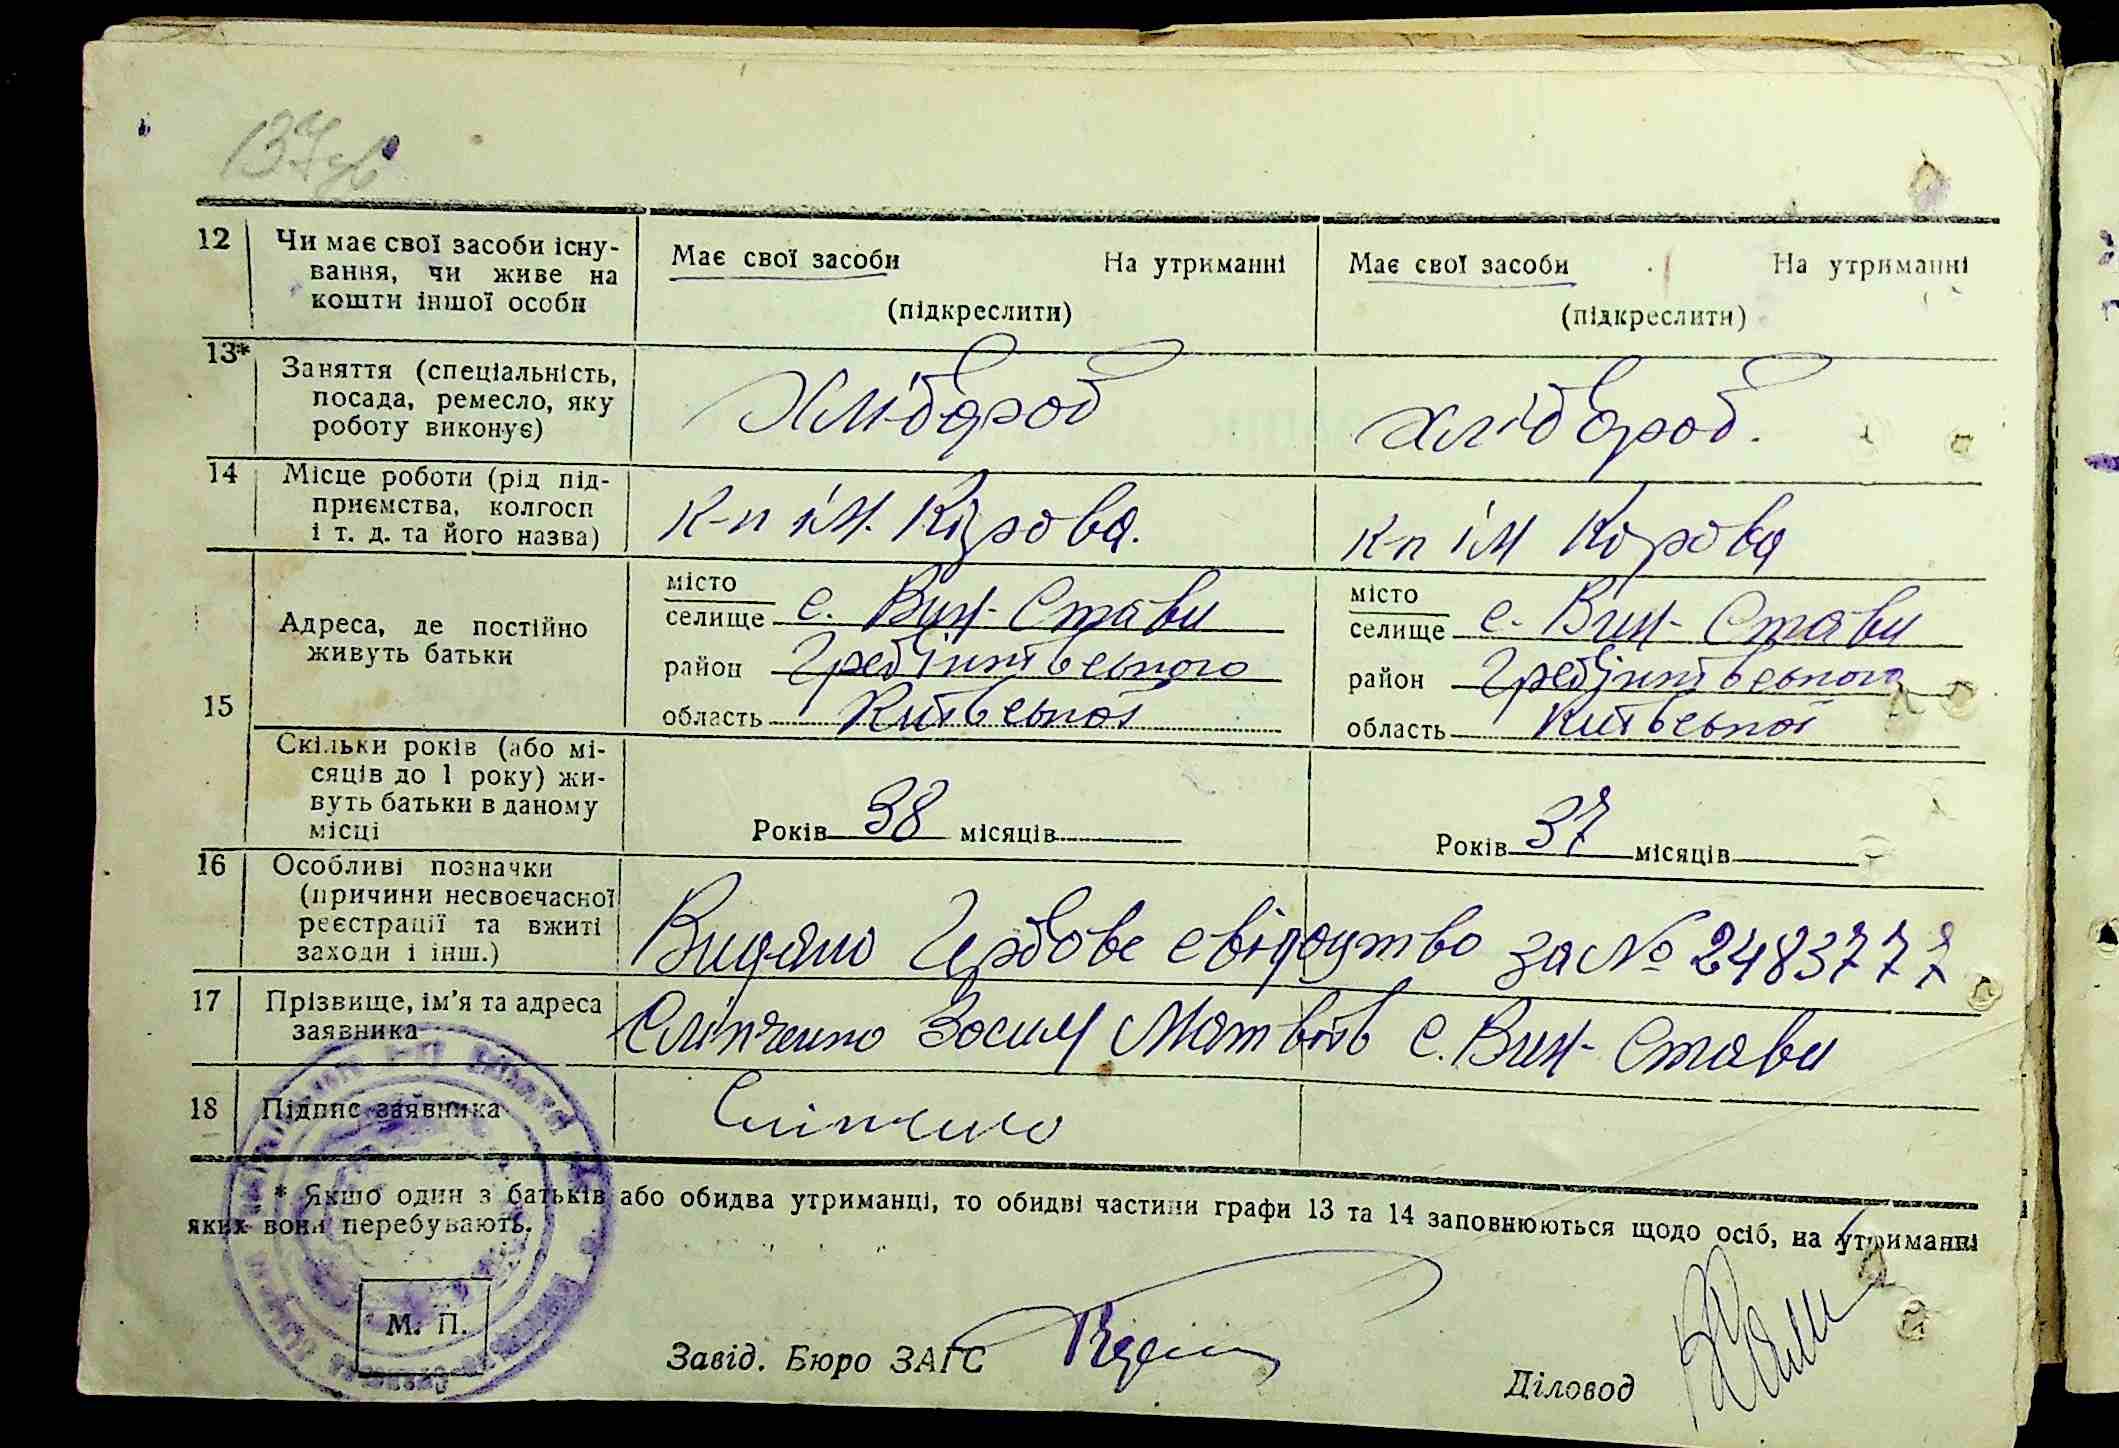 137 зв
12 Чи має свої засоби існу- Має свої засоби На утриманні Має свої засоби На утриманні
вання, чи живе на
кошти іншої особи (підкреслити) (підкреслити)
13* Заняття (спеціальність,
посада, ремесло, яку Хлібороб хлібороб.
роботу виконує)
14 Місце роботи (рід під-
приємства, колгосп к-п ім. Кірова. к-п ім Кірова
і т. д. та його назва)
15 Адреса, де постійно
живуть батьки
місто місто
селище с. Вин-Стави селище с. Вин-Стави
район Гребінківського район Гребінківського
область Київської область Київської
Скільки років (або мі-
сяців до 1 року) жи-
вуть батьки в даному
місці Років 38 місяців Років 37 місяців
16 Особливі позначки
(причини несвоєчасної
реєстрації та вжиті Видано Гербове свідоцтво за № 2483777
заходи і інш.)
17 Прізвище, ім'я та адреса
заявника Сліпченко Зосим Матвіїв с. Вин-Стави
18 Підпис заявника Сліпченко
* Якщо один з батьків або обидва утриманці, то обидві частини графи 13 та 14 заповнюються щодо осіб, на утриманні
яких вони перебувають.
М. П.
Завід. Бюро ЗАГС
Діловод